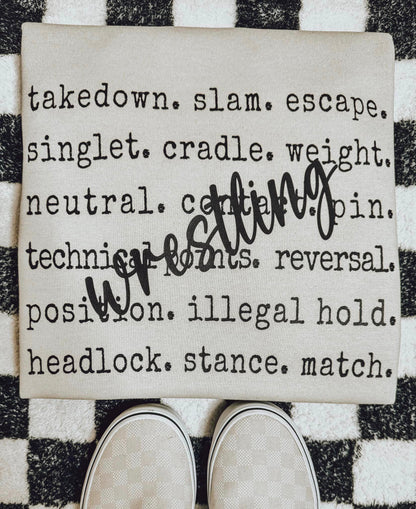 takedown. slam. escape.
singlet. cradle. weight.
neutral. contact. pin.
wrestling
technical points. reversal.
position. illegal hold.
headlock. stance. match.